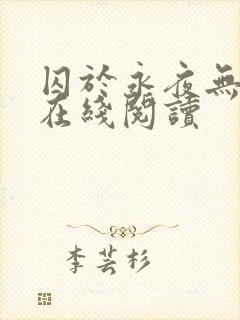 囚於永夜無
在綫閱讀
李芸杉